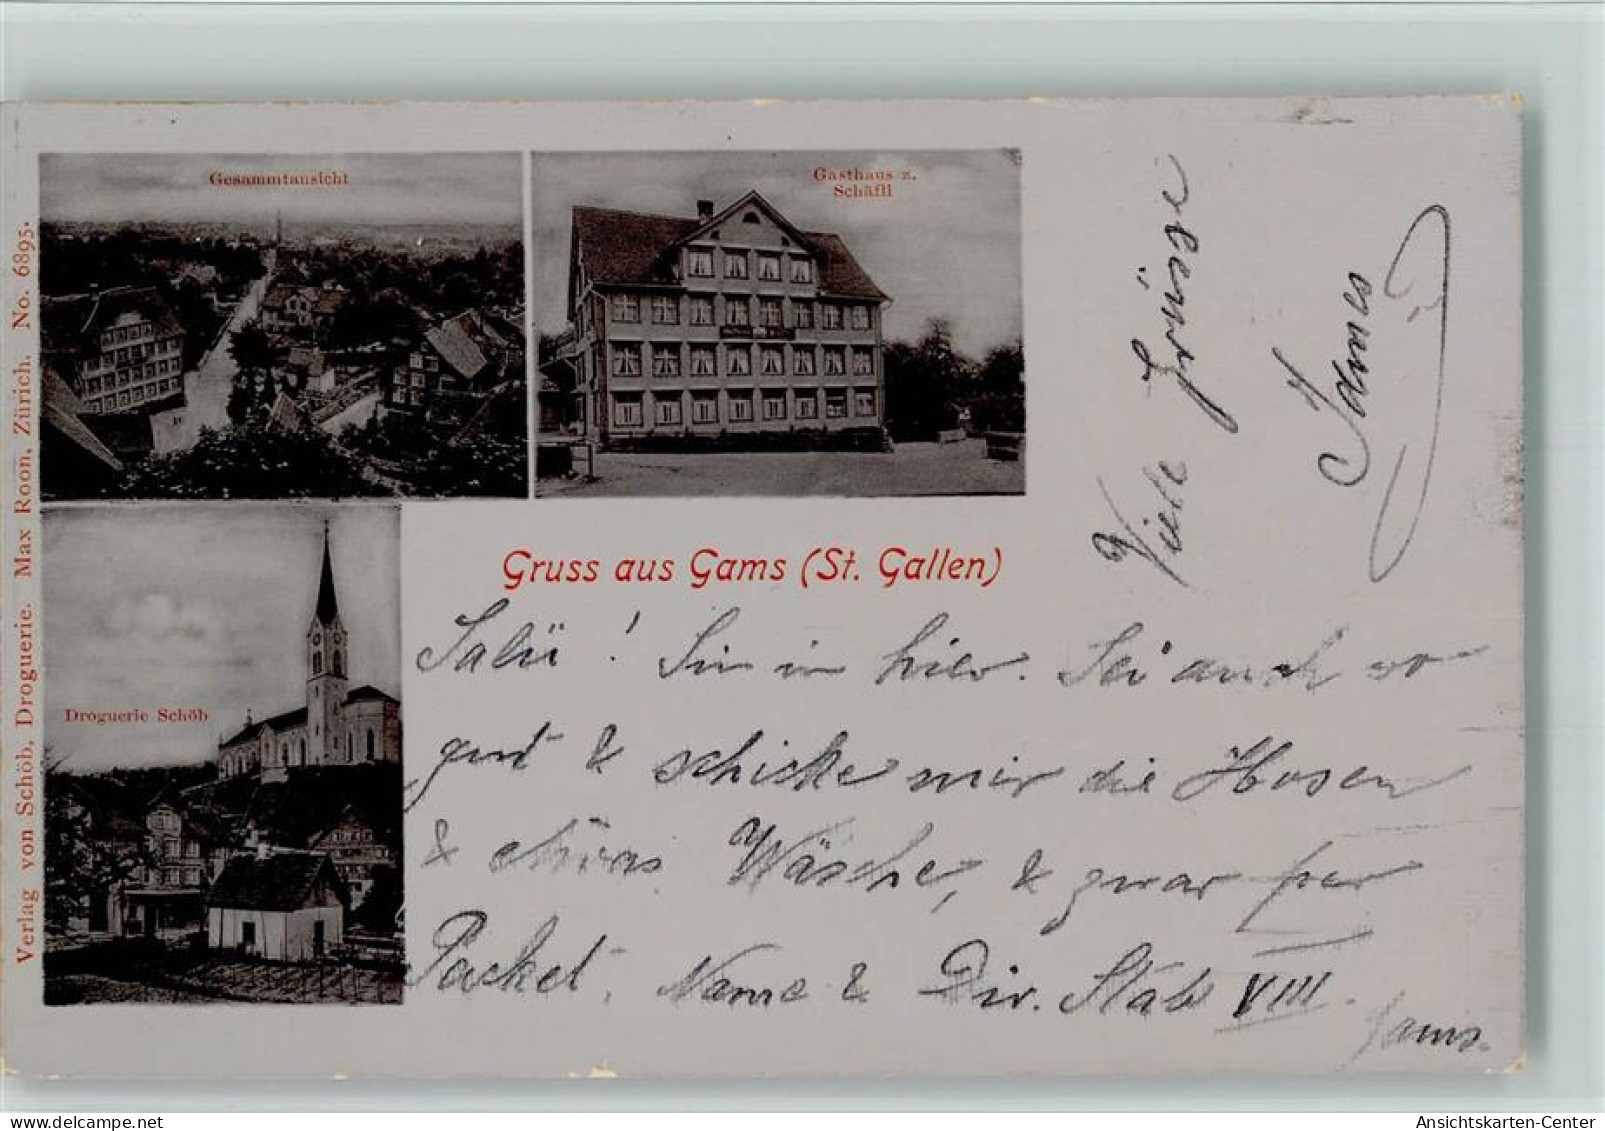 Gesammtansicht
Gasthaus z.
Schäfli
Droguerie Schöb
Verlag von Schöb, Droguerie. Max Roon, Zürich. No. 6895.
Gruss aus Gams (St. Gallen)
Salü! Bin in hier. Sei auch so
gut & schicke mir die Hosen
& etwas Wäsche, & zwar per
Packet, Name & Div. Stab VIII.
Gams.
Viele Grüsse
Ansichtskarten-Center